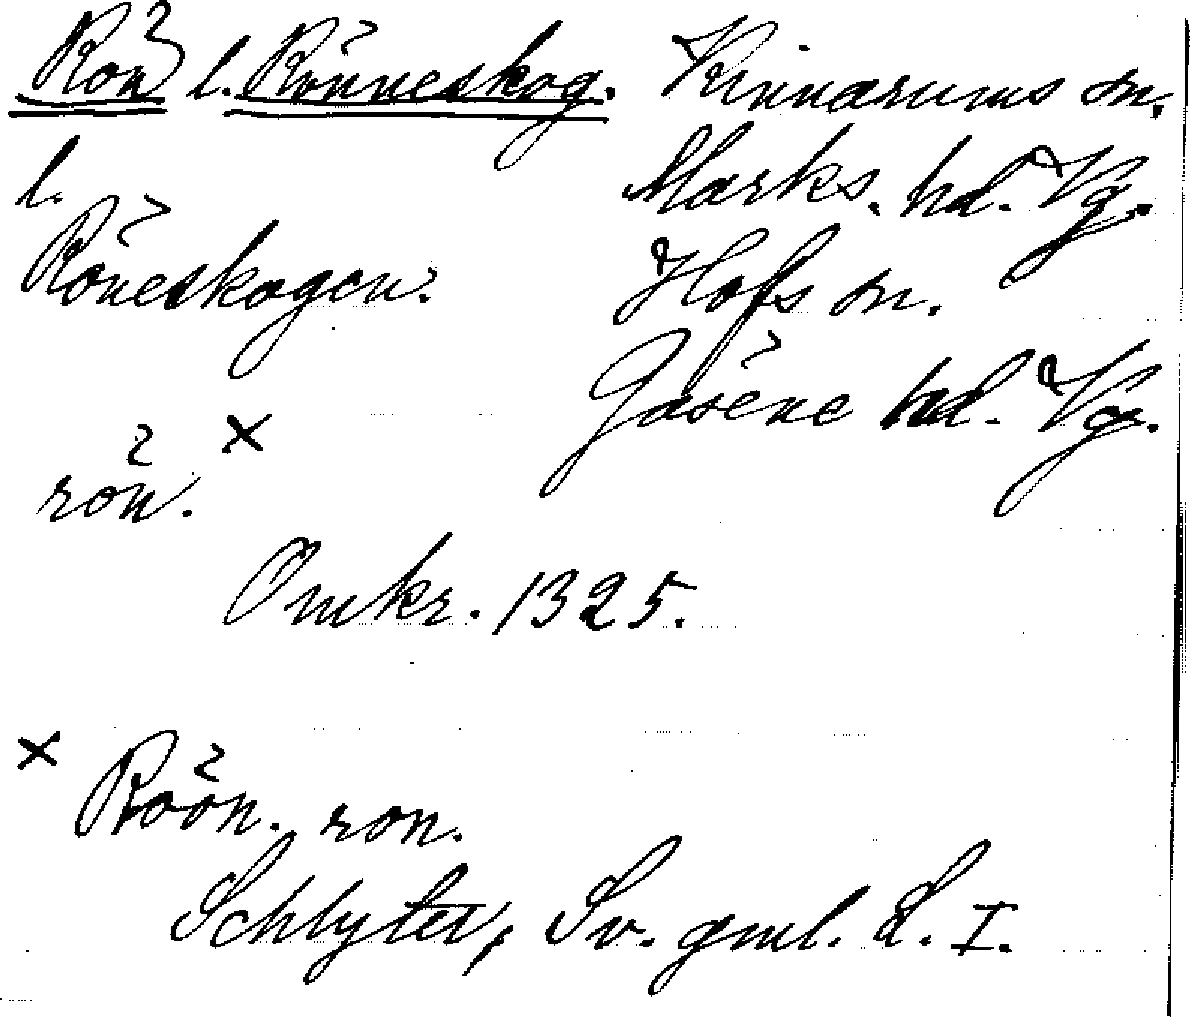 Rön l. Rönneskog. Kinnarums sn.
l. Marks. hd. Vg.
Röneskogen. Hofs sn.
Gäsene hd. Vg.
rön. ×
Omkr. 1325.
× Roön. ron.
Schlyter, Sv. gml. L. I.